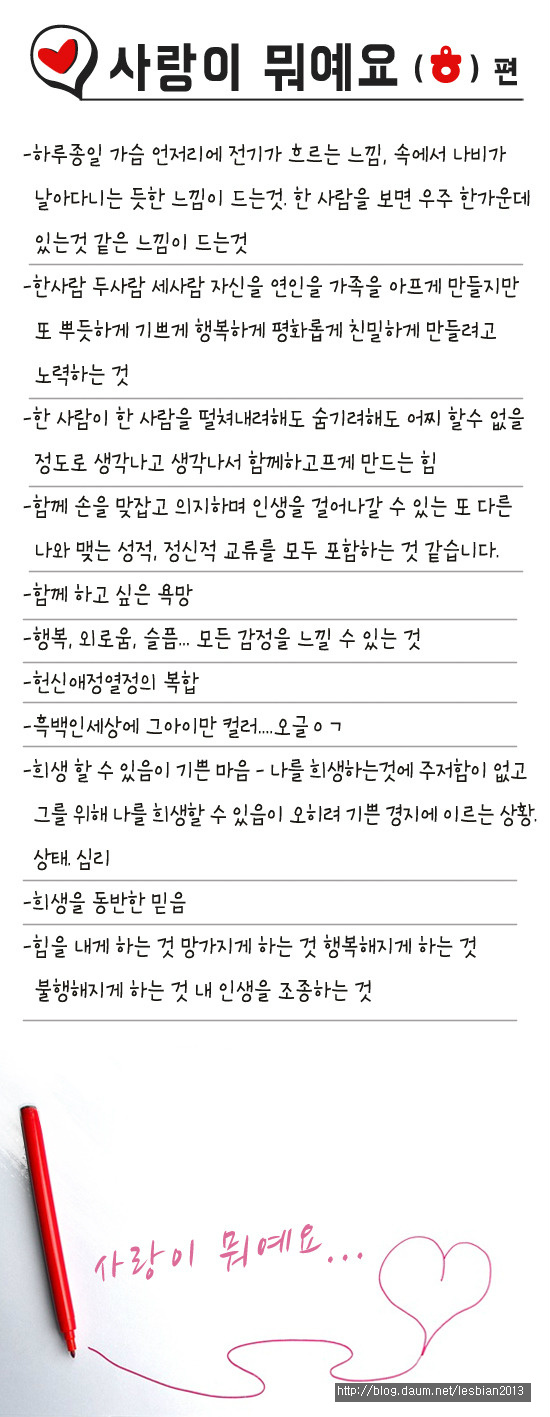 사랑이 뭐예요 (ㅎ) 편
-하루종일 가슴 언저리에 전기가 흐르는 느낌, 속에서 나비가
날아다니는 듯한 느낌이 드는것. 한 사람을 보면 우주 한가운데
있는것 같은 느낌이 드는것
-한사람 두사람 세사람 자신을 연인을 가족을 아프게 만들지만
또 뿌듯하게 기쁘게 행복하게 평화롭게 친밀하게 만들려고
노력하는 것
-한 사람이 한 사람을 떨쳐내려해도 숨기려해도 어찌 할수 없을
정도로 생각나고 생각나서 함께하고프게 만드는 힘
-함께 손을 맞잡고 의지하며 인생을 걸어나갈 수 있는 또 다른
나와 맺는 성적, 정신적 교류를 모두 포함하는 것 같습니다.
-함께 하고 싶은 욕망
-행복, 외로움, 슬픔... 모든 감정을 느낄 수 있는 것
-헌신애정열정의 복합
-흑백인세상에 그아이만 컬러....오글ㅇㄱ
-희생 할 수 있음이 기쁜 마음 - 나를 희생하는것에 주저함이 없고
그를 위해 나를 희생할 수 있음이 오히려 기쁜 경지에 이르는 상황.
상태. 심리
-희생을 동반한 믿음
-힘을 내게 하는 것 망가지게 하는 것 행복해지게 하는 것
불행해지게 하는 것 내 인생을 조종하는 것
사랑이 뭐예요...
http://blog.daum.net/lesbian2013